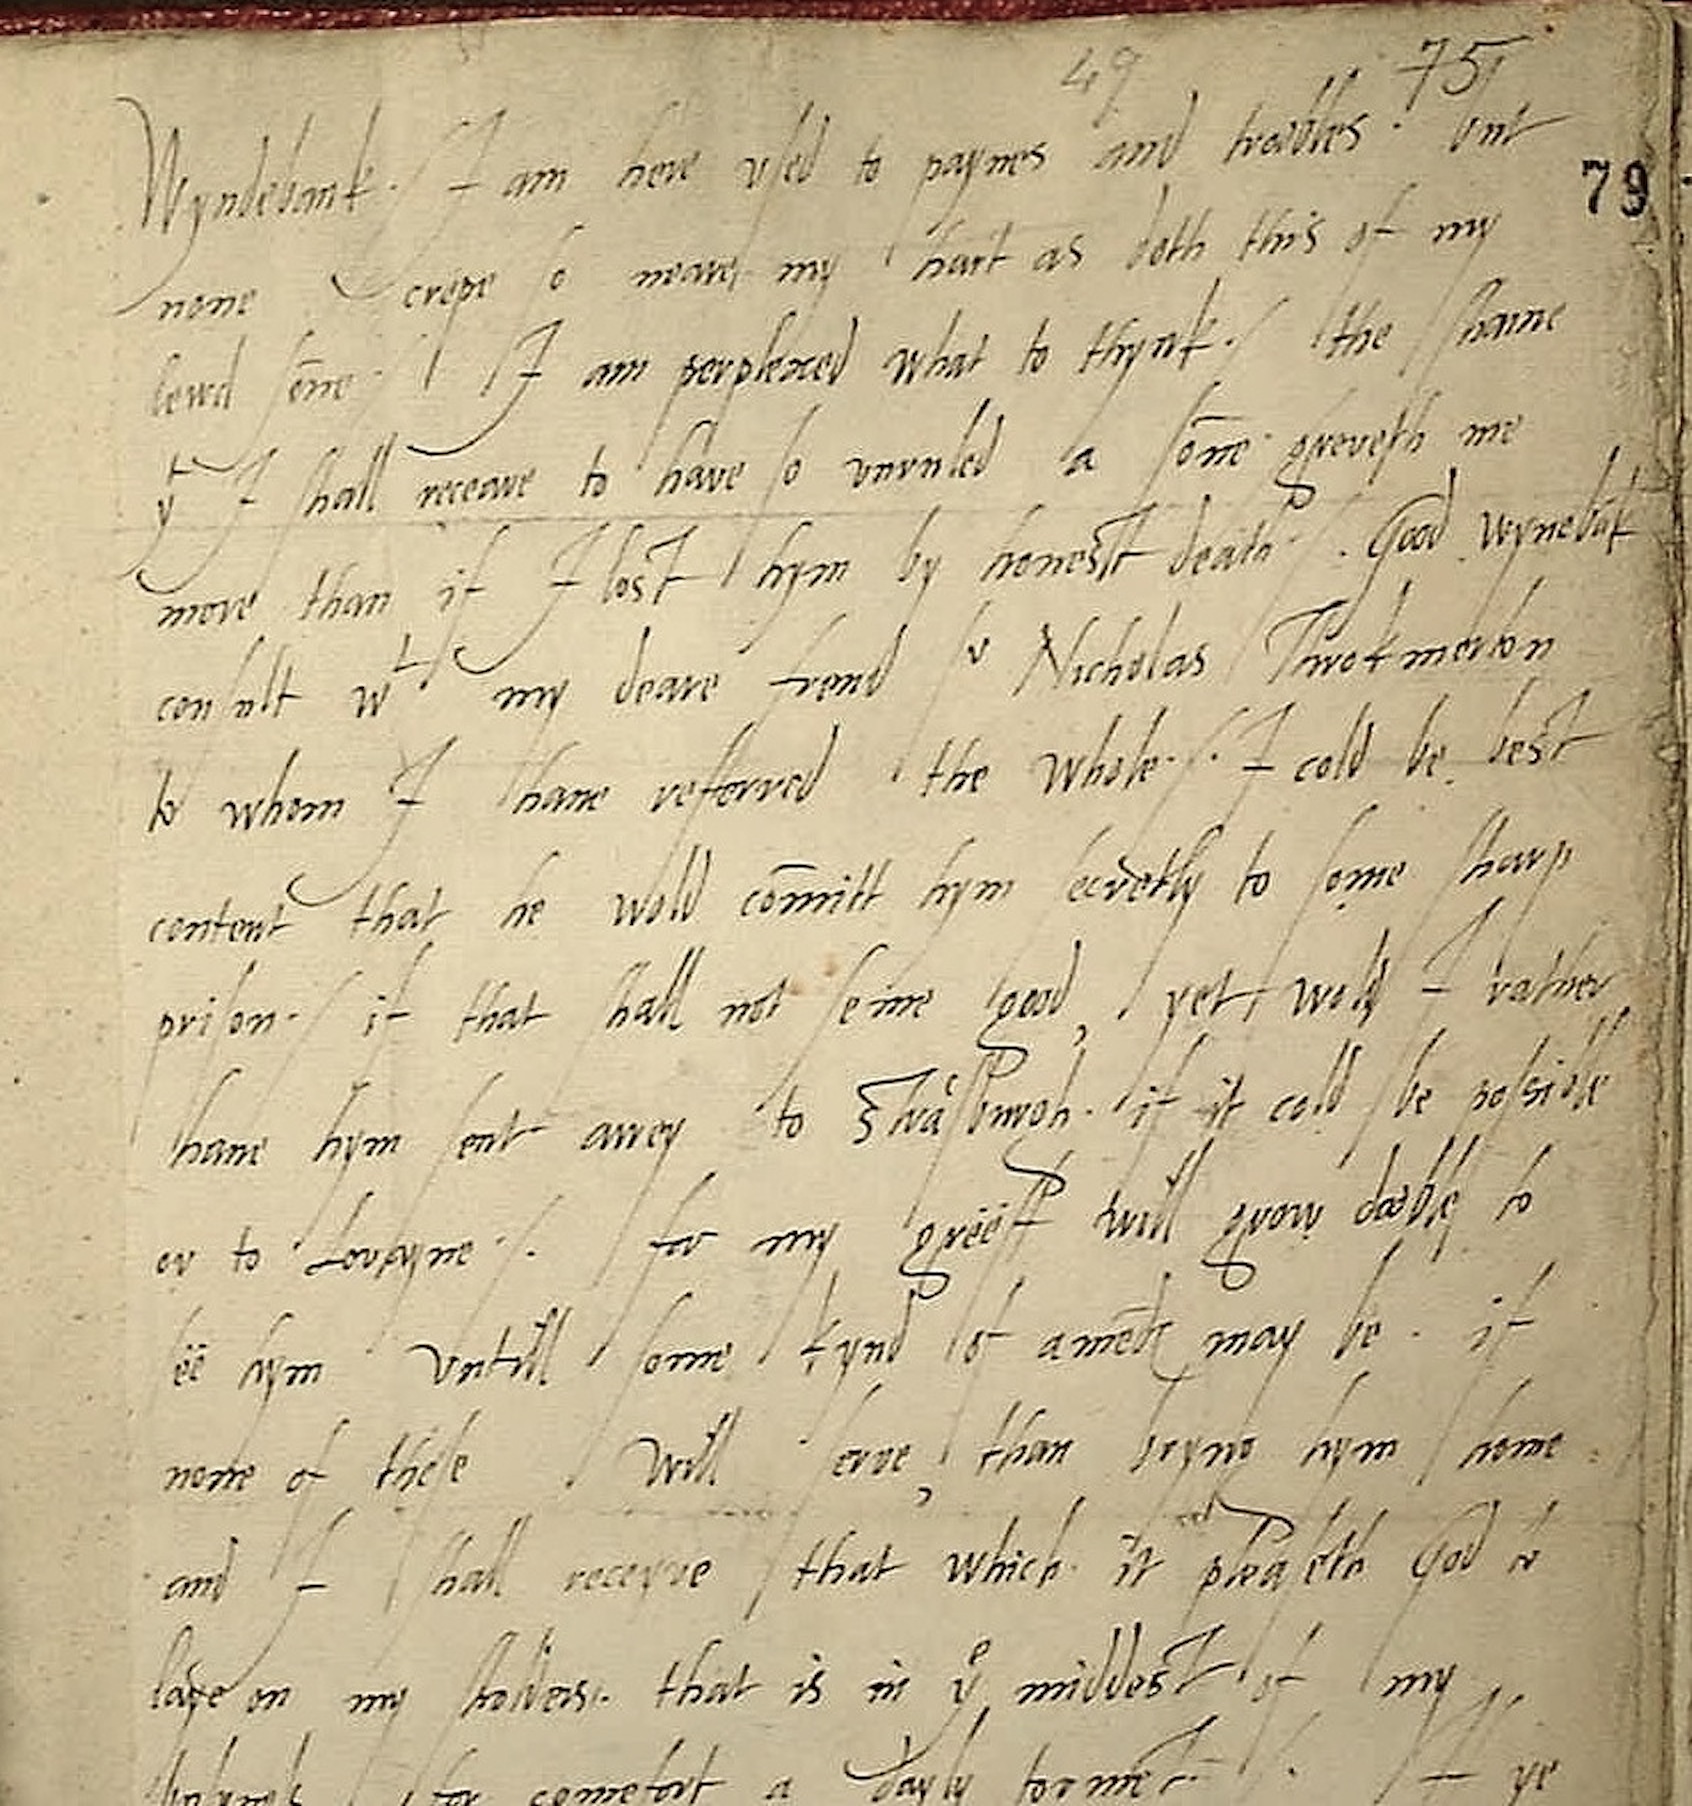 49 75
79
Wyndebank. I am here vsed to paynes and trobbles. but
none crepe so neare my hart as doth this of my
lewd sōne. I am perplexed what to thynk. the shame
yt I shall receave to have so vnruled a sōne greveth me
more than if I lost hym by honest death. Good Wynebāk
consult wt my deare frend Sr Nicholas Throkmerton
to whom I haue referred the whole. I cold be best
content that he wold cōmitt hym secretly to some sharp
prison. if that shall not seme good, yet wold I rather
haue hym sent awey to Strasburgh. if it cold be possible
or to Lovayne. for my greeff will grow dooble to
see hym vntill some kynd of amēds may be. if
none of these will serve, than bryng hym home
and I shall receyve that which it pleaseth God to
laye on my sholders. that is in ye middest of my
for comefort a dayly tormēt. If ye